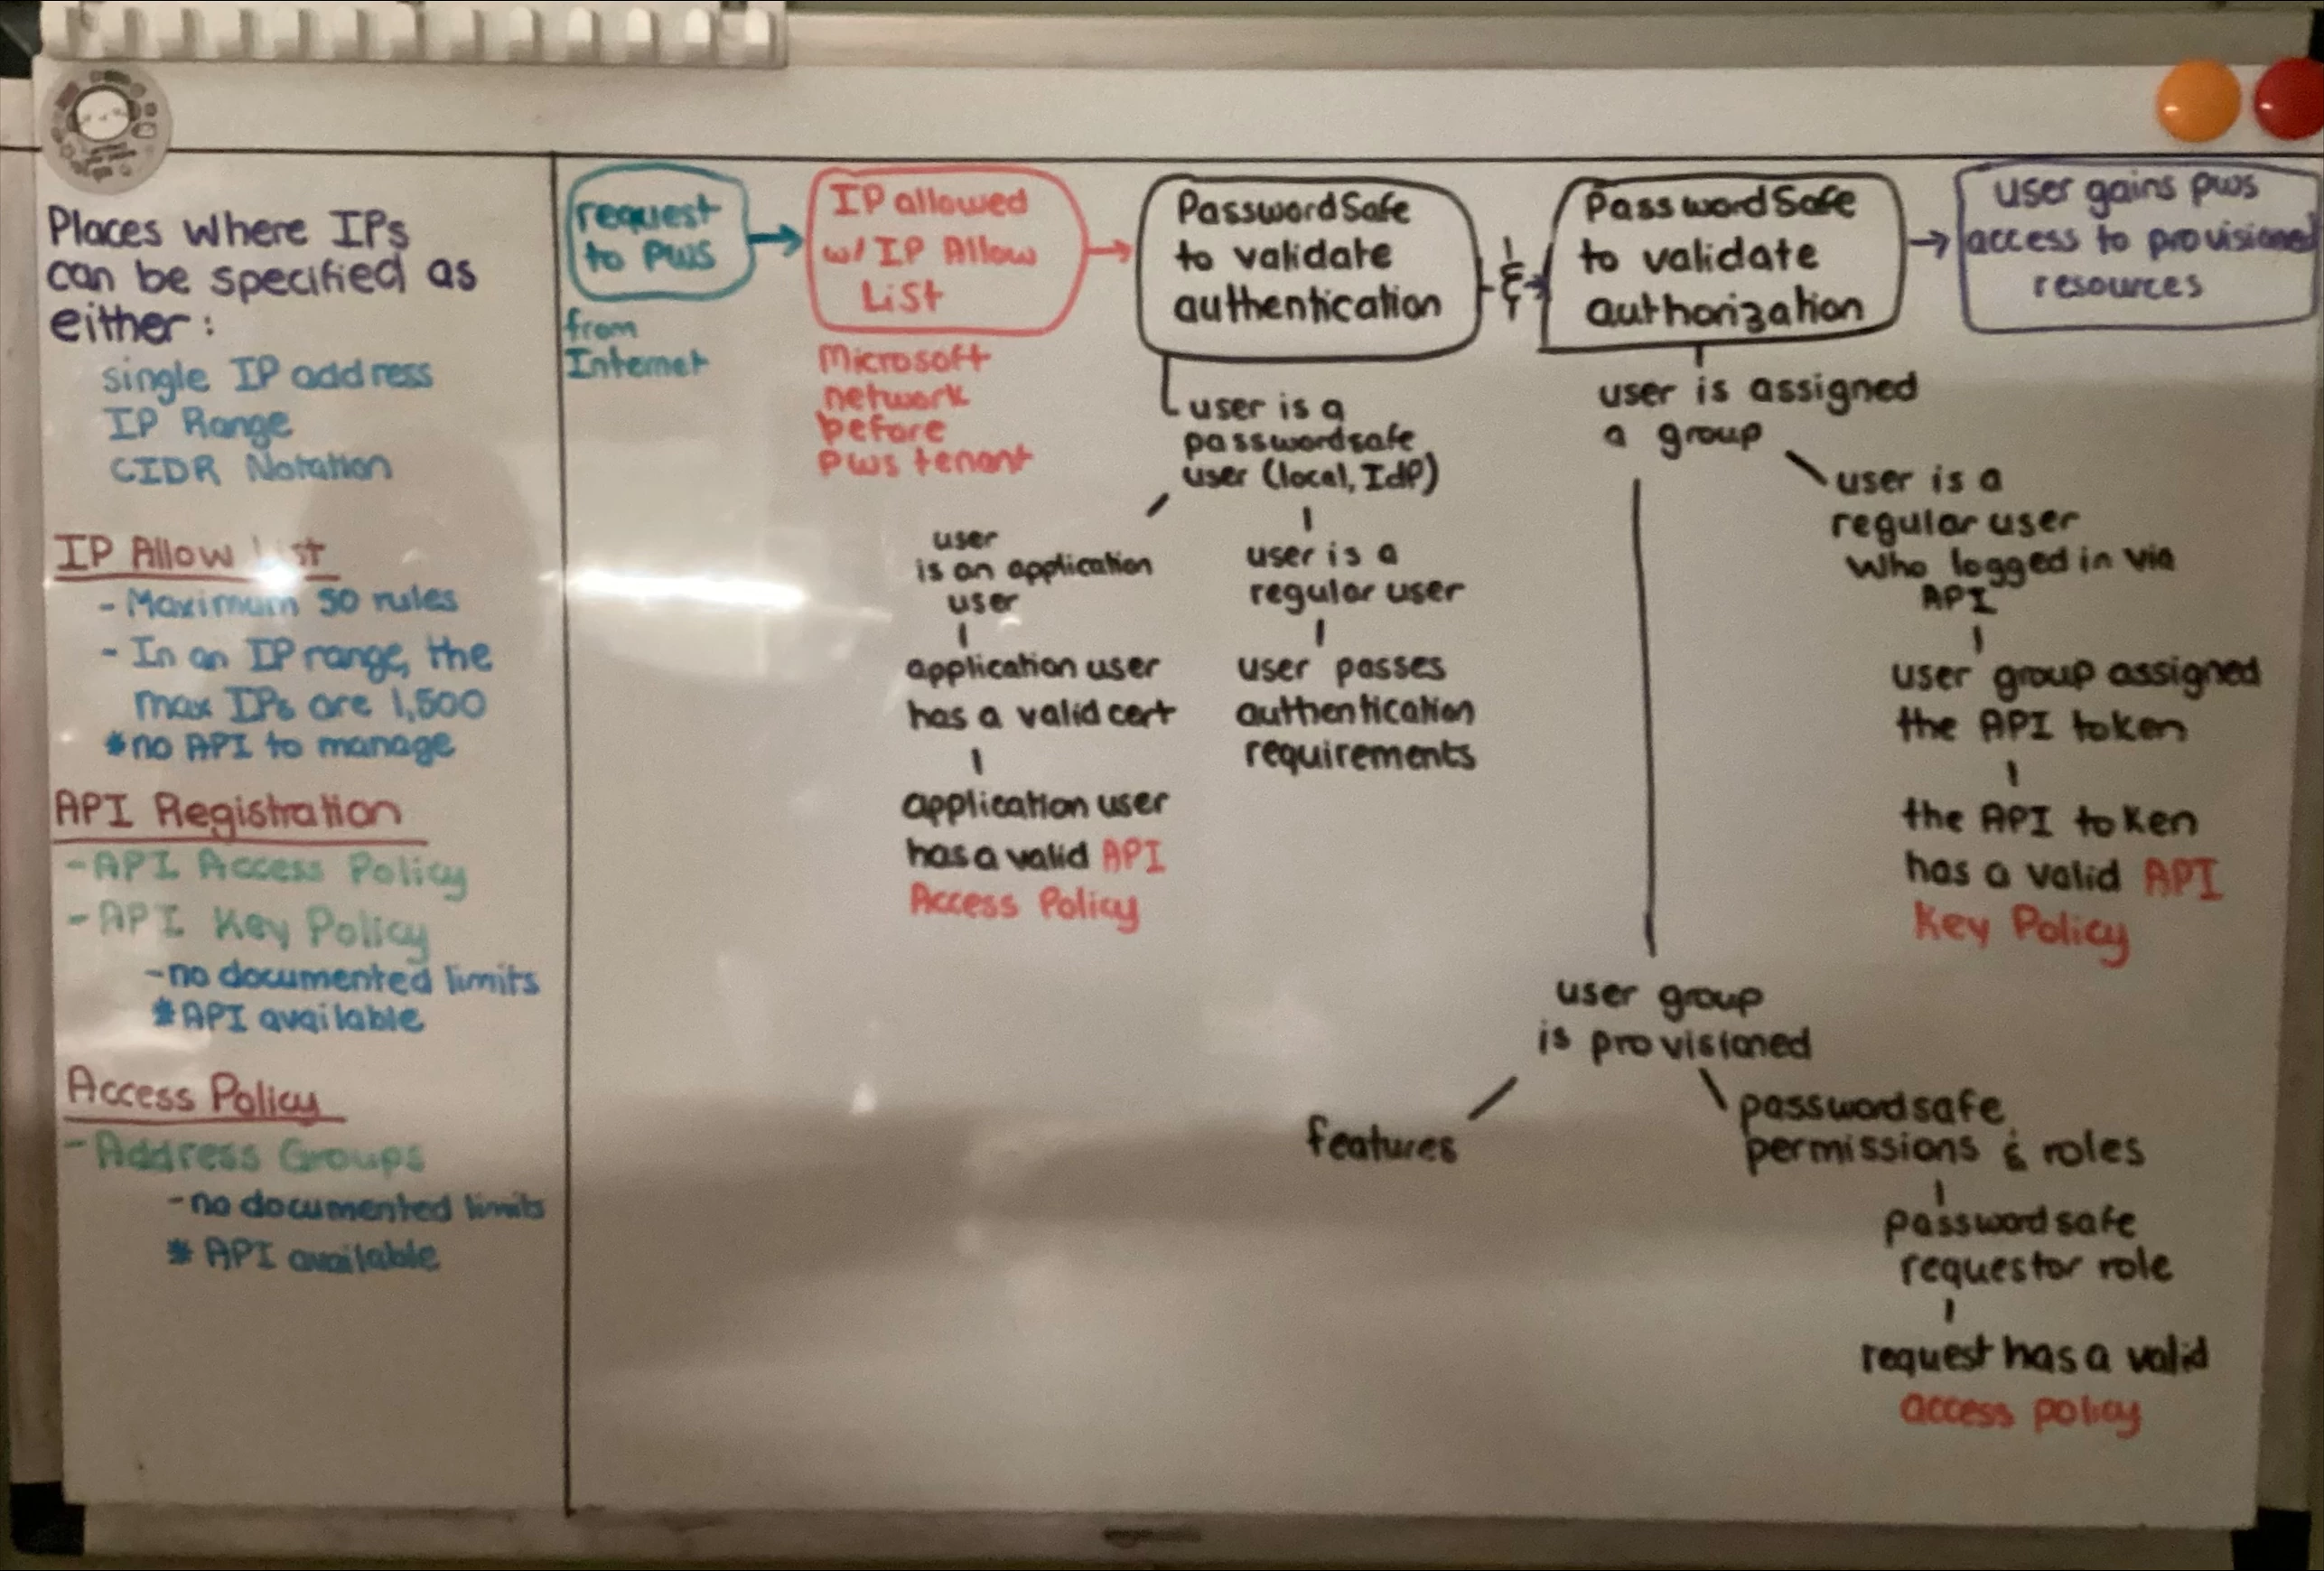 Places where IPs
can be specified as
either:
single IP address
IP Range
CIDR Notation
IP Allow List
- Maximum 50 rules
- In an IP range, the
max IPs are 1,500
*no API to manage
API Registration
- API Access Policy
- API Key Policy
- no documented limits
*API available
Access Policy
- Address Groups
- no documented limits
* API available
request
to PWS
from
Internet
IP allowed
w/ IP Allow
List
Microsoft
network
before
PWS tenant
PasswordSafe
to validate
authentication
&
PasswordSafe
to validate
authorization
user gains pws
access to provisioned
resources
user is a
passwordsafe
user (local, IdP)
user
is an application
user
application user
has a valid cert
application user
has a valid API
Access Policy
user is a
regular user
user passes
authentication
requirements
user is assigned
a group
user is a
regular user
who logged in via
API
user group assigned
the API token
the API token
has a valid API
Key Policy
user group
is provisioned
features
passwordsafe
permissions & roles
passwordsafe
requestor role
request has a valid
access policy